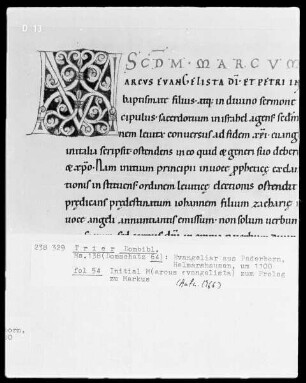 D 13
SCDM · MARCUM
ARCUS EVANGELISTA DI · ET PETRI IN
baptismate filius · atq; in divino sermone
cipulus · sacerdotium in israhel agens · secdm
nem levita · conversus ad fidem · xpi · evang
initalia scripsit · ostendens in eo quid & generi suo deber
& xpo · Nam initium principii in voce pphetice excla
tionis instituens · ordinem levitice electionis ostendit
predicans predestinatum iohannem filium zacharie
voce angeli annuntiantis emissum · non solum verbum
238 529 Trier Dombibl.
Hs.138(Domschatz 64): Evangeliar aus Paderborn,
Helmarshausen, um 1100
fol 54 Initial M(arcus evangelista) zum Prolog
zu Markus